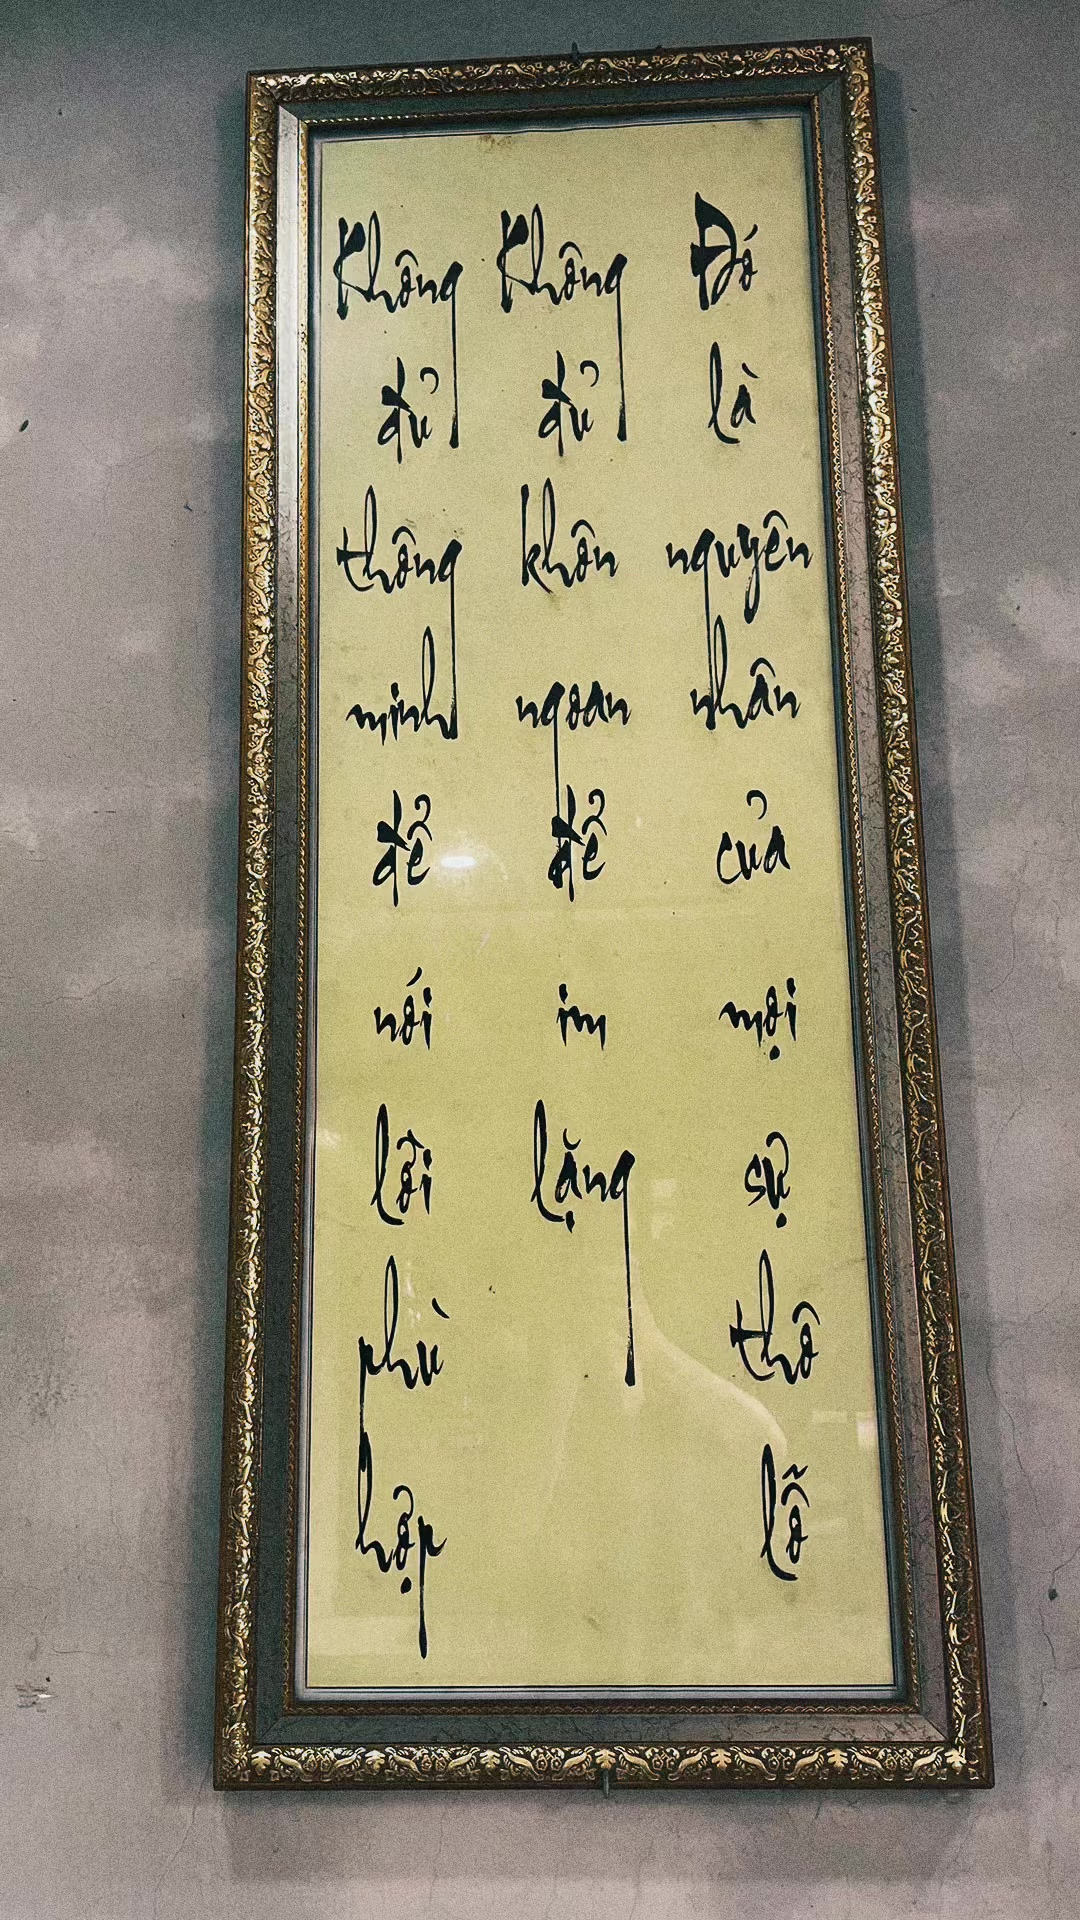 Không đủ thông minh để nói lời phù hợp
Không đủ khôn ngoan để im lặng
Đó là nguyên nhân của mọi sự thô lỗ